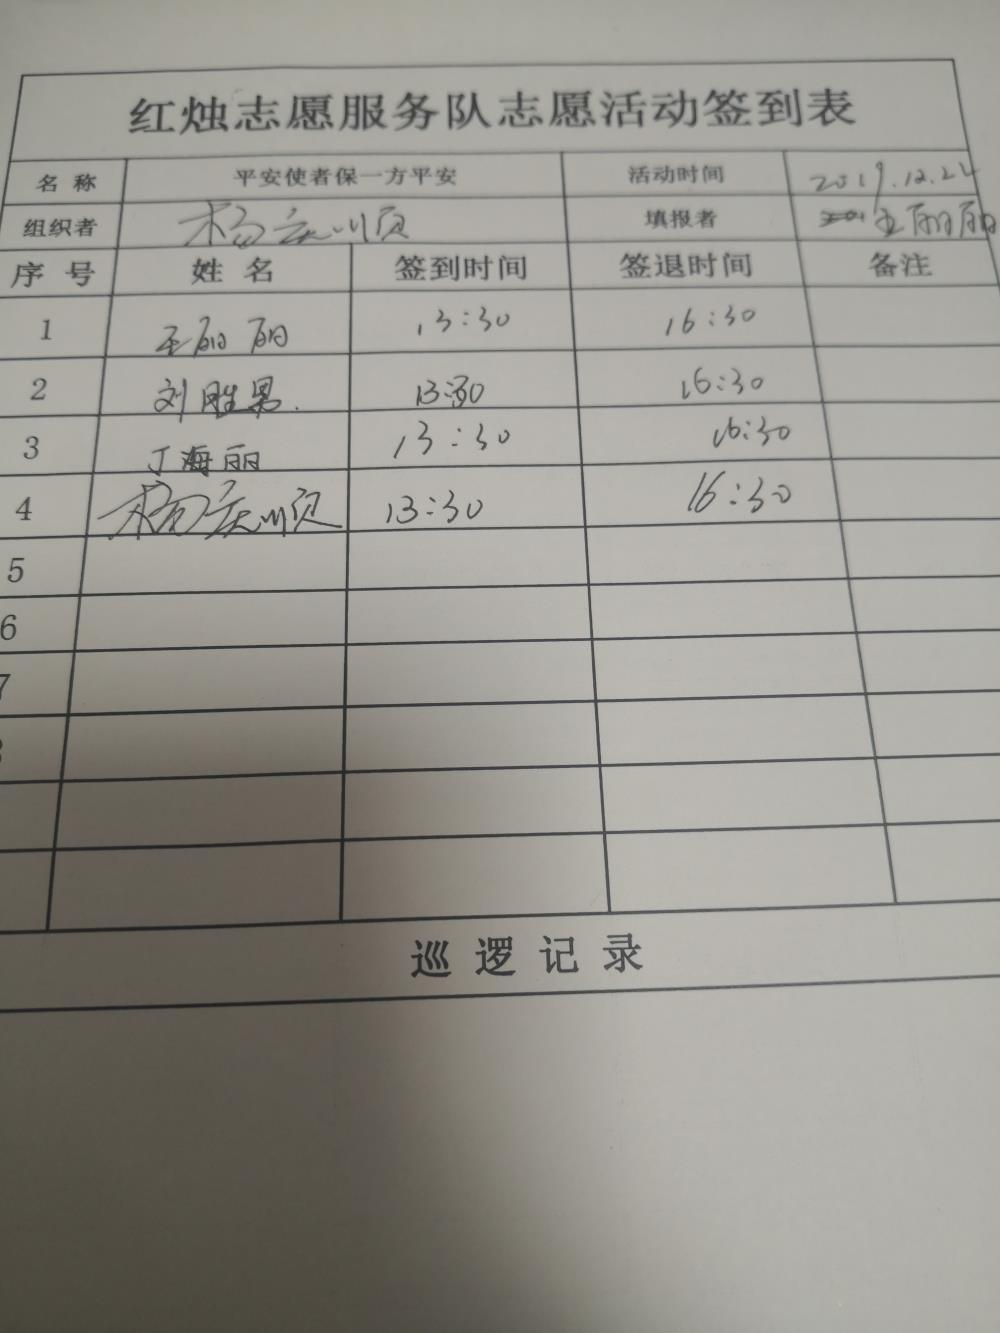 红烛志愿服务队志愿活动签到表
名 称 平安使者保一方平安 活动时间 2019.12.22
组织者 杨庆顺 填报者 王丽丽
序 号 姓 名 签到时间 签退时间 备注
1 王丽丽 13:30 16:30
2 刘胜男. 13:30 16:30
3 丁海丽 13:30 16:30
4 杨庆顺 13:30 16:30
5
6
7
巡 逻 记 录